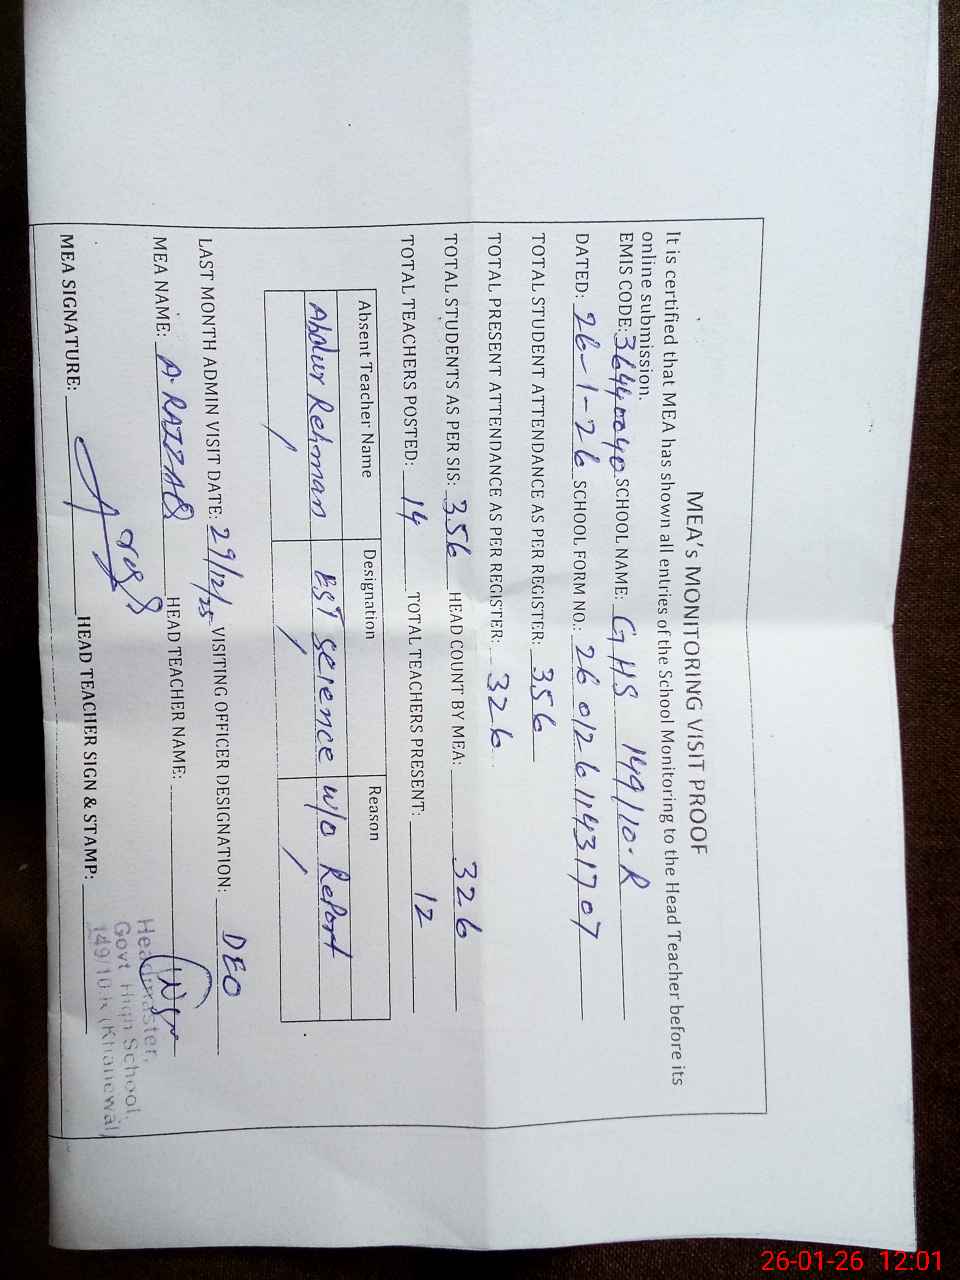 MEA's MONITORING VISIT PROOF
It is certified that MEA has shown all entries of the School Monitoring to the Head Teacher before its
online submission.
EMIS CODE: 36440040 SCHOOL NAME: GHS 149/10-R
DATED: 26-1-26 SCHOOL FORM NO.: 260126114317 07
TOTAL STUDENT ATTENDANCE AS PER REGISTER: 356
TOTAL PRESENT ATTENDANCE AS PER REGISTER: 326
TOTAL STUDENTS AS PER SIS: 356 HEAD COUNT BY MEA: 326
TOTAL TEACHERS POSTED: 14 TOTAL TEACHERS PRESENT: 12
Absent Teacher Name Designation Reason
Abdur Rehman EST Science w/o Report
LAST MONTH ADMIN VISIT DATE: 29/12/25 VISITING OFFICER DESIGNATION: DEO
MEA NAME: A.RAZZAQ HEAD TEACHER NAME:
MEA SIGNATURE: HEAD TEACHER SIGN & STAMP:
Headmaster,
Govt High School,
149/10-R (Khanewal)
26-01-26 12:01